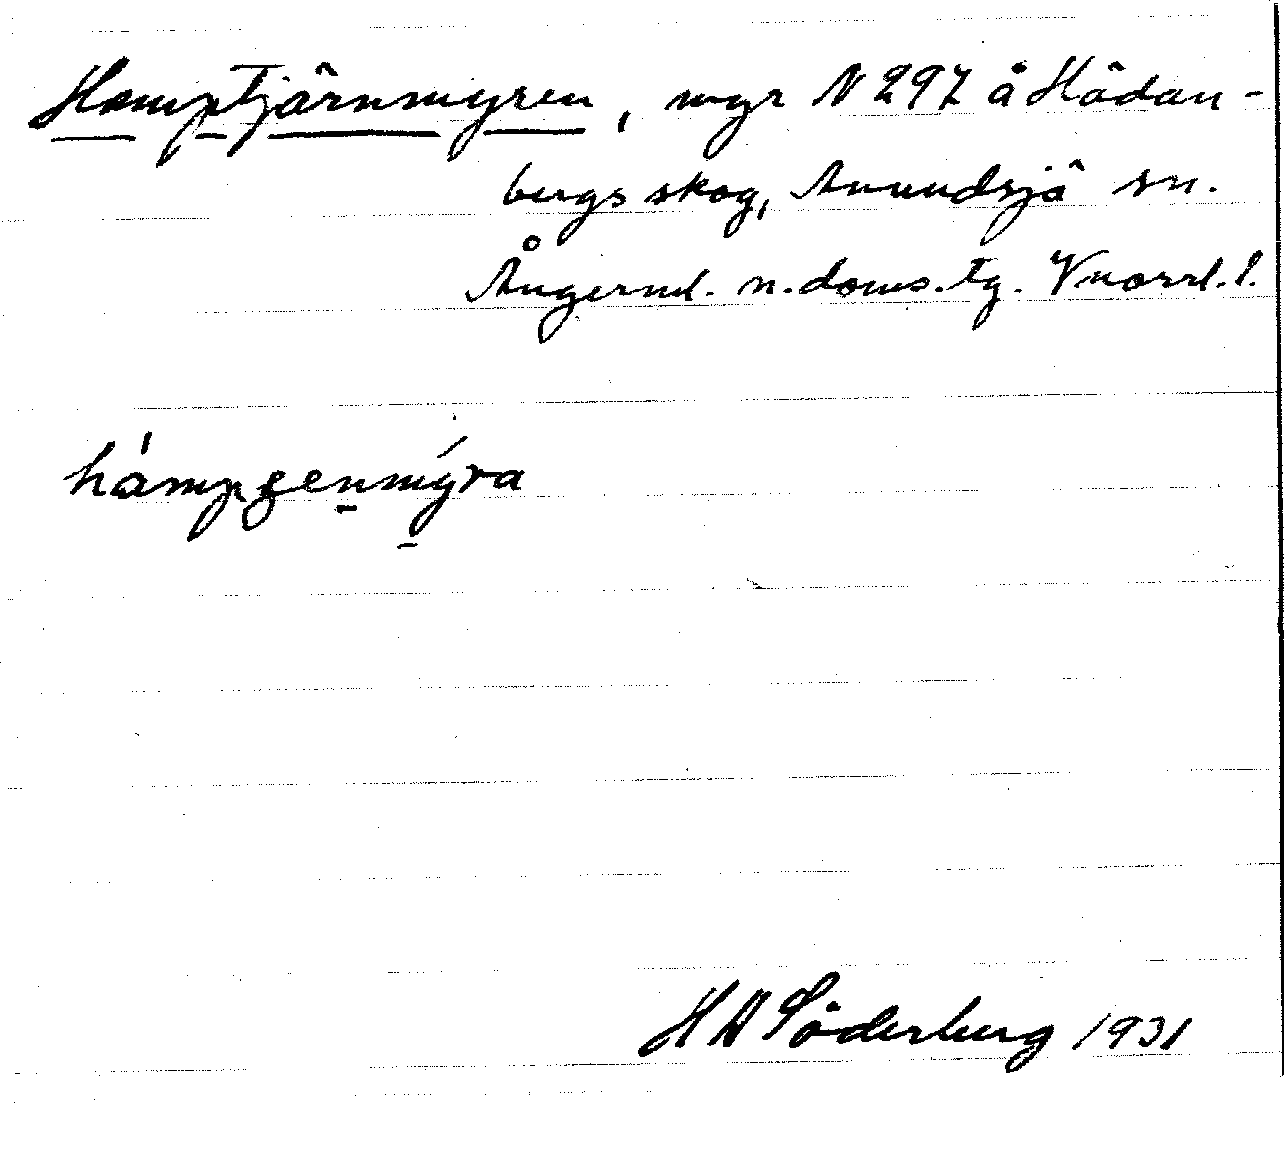 Hamptjärnmyren, myr N 297 å Hädan-
bergs skog, Anundsjö sn.
Ångerml. n. doms. tg. Vnorrl. l.
hámpɕenmýra
H A Söderberg 1931